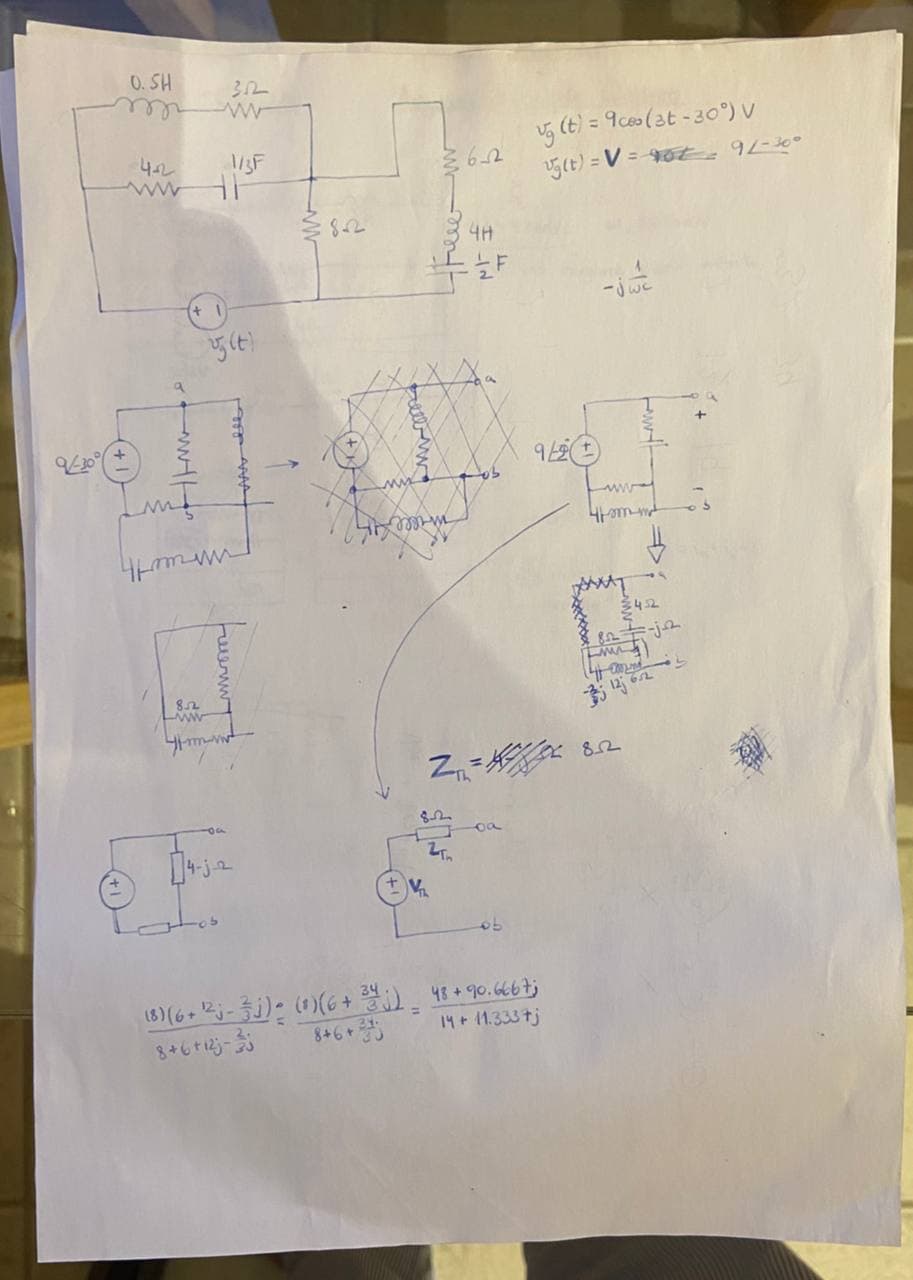 0.5H 3Ω
4Ω 1/3F
8Ω
6Ω
4H
1/2 F
+ -
vg(t)
vg(t) = 9cos(3t-30°) V
vg(t) = V = 9∠-30°
-j 1/ωc
a
9∠-30°
+
-
b
a
+
-
b
9∠
+
-
a
+
-
b
a
4Ω
-jΩ
8Ω
b
-2/3j 12j 6Ω
8Ω
ZTh = 8Ω
a
+
-
4-jΩ
b
8Ω
ZTh
a
+
-
VTh
b
(8)(6+12j-2/3j) / 8+6+12j-2/3j = (8)(6+34/3j) / 8+6+34/3j = 48+90.6667j / 14+11.3337j